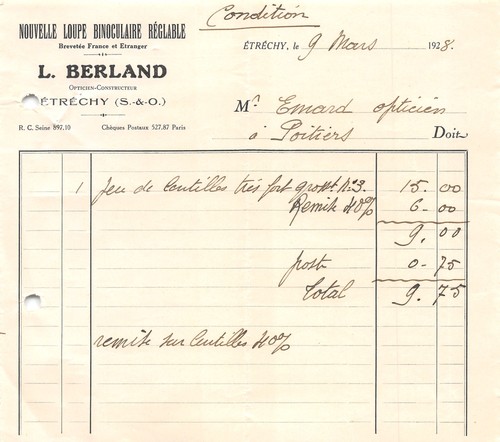 Condition
NOUVELLE LOUPE BINOCULAIRE RÉGLABLE
Brevetée France et Etranger
L. BERLAND
OPTICIEN-CONSTRUCTEUR
ÉTRÉCHY (S.-&-O.)
R. C. Seine 897.10 Chèques Postaux 527.87 Paris
ÉTRÉCHY, le 9 Mars 1928.
Mr Emard opticien
à Poitiers Doit
1 Jeu de Lentilles très fort grosst No 3. 15. 00
Remise 40% 6- 00
9. 00
poste 0- 75
Total 9. 75
remise sur lentilles 40%